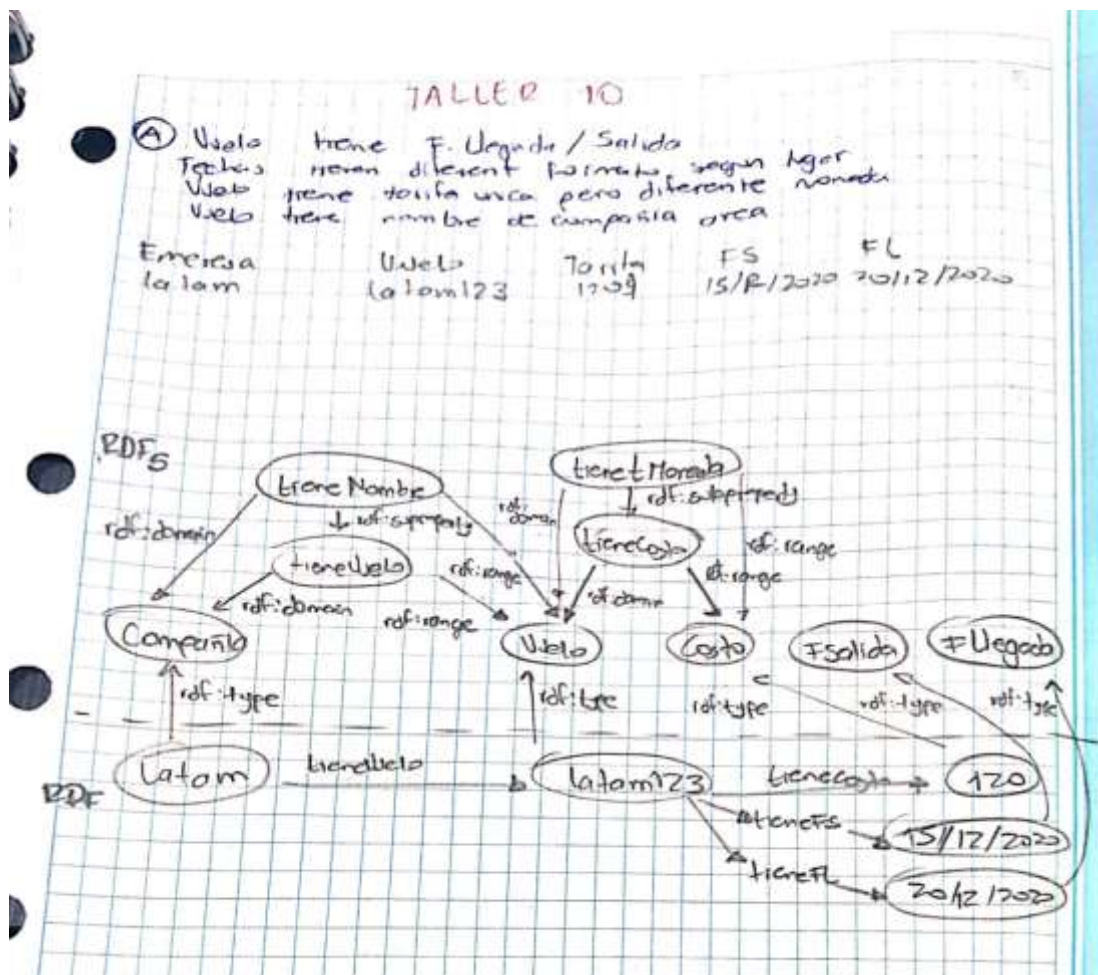 TALLER 10
A Vuelo tiene F. llegada / Salida
Fechas tienen diferent formato, segun lugar
Vuelo tiene tarifa unica pero diferente moneda
Vuelo tiene nombre de compañia area
Empresa Vuelo Tarifa FS FL
latam latam123 15/12/2020 20/12/2020
RDFS
tieneNombre tienetMoneda
rdf:domain rdf:suproperty rdf:domain rdf:subproperty
tieneVuelo rdf:range tieneCosto rdf:range
rdf:domain rdf:range rdf:domain rdf:range
Compañia Vuelo Costo FSalida FLlegada
rdf:type rdf:type rdf:type rdf:type rdf:type
RDF
Latam tieneVuelo latam123 tieneCosto 120
tieneFS 15/12/2020
tieneFL 20/12/2020